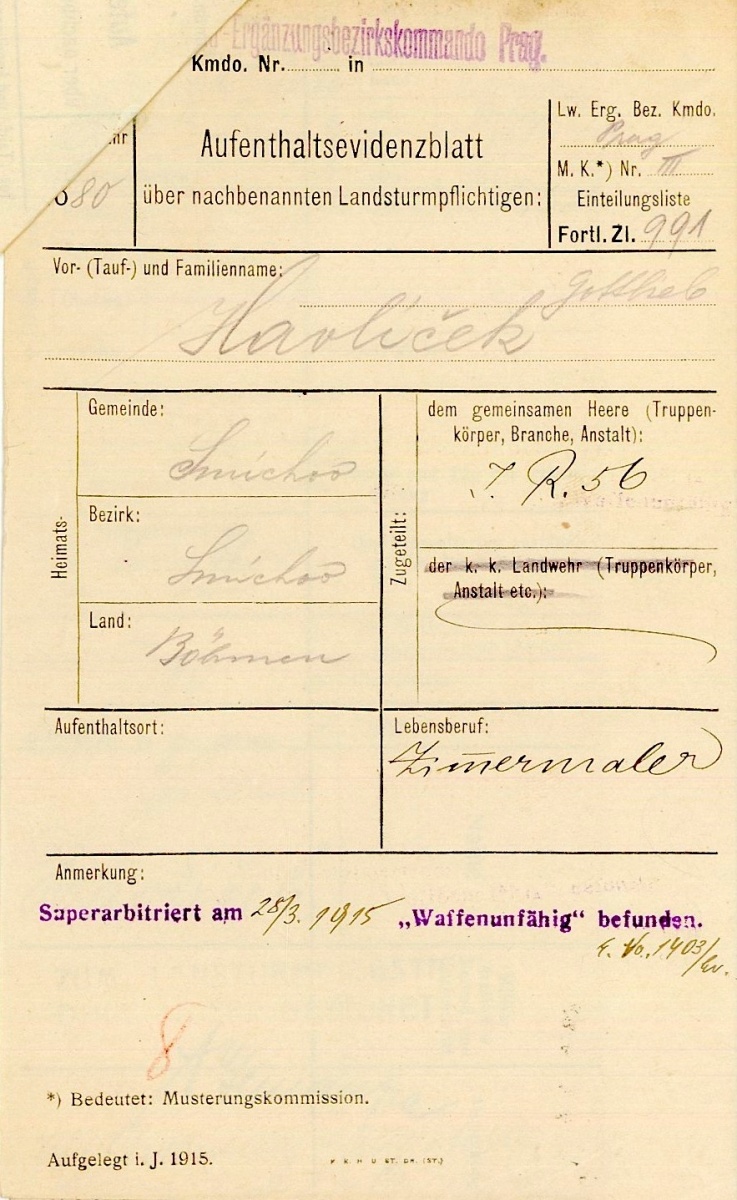 -Ergänzungsbezirkskommando Prag.
Kmdo. Nr. in
Lw. Erg. Bez. Kmdo.
Prag
M. K.*) Nr. III
Einteilungsliste
Fortl. Zl. 991
80
Aufenthaltsevidenzblatt
über nachbenannten Landsturmpflichtigen:
Vor- (Tauf-) und Familienname:
Gottlieb
Havlíček
Heimats-
Gemeinde:
Smíchov
Bezirk:
Smíchov
Land:
Böhmen
Zugeteilt:
dem gemeinsamen Heere (Truppen-
körper, Branche, Anstalt):
I. R. 56
der k. k. Landwehr (Truppenkörper,
Anstalt etc.):
Aufenthaltsort:
Lebensberuf:
Zim̄ermaler
Anmerkung:
Superarbitriert am 28/3. 1915 „Waffenunfähig“ befunden.
1403/
8
*) Bedeutet: Musterungskommission.
Aufgelegt i. J. 1915.